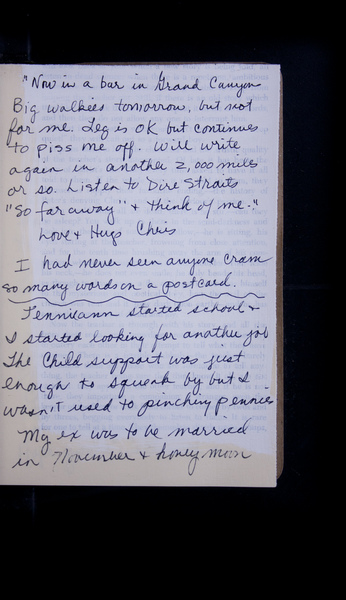 "Now in a bar in Grand Canyon
Big walkies tomorrow, but not
for me. Leg is OK but continues
to piss me off. Will write
again in another 2,000 miles
or so. Listen to Dire Straits
"So far away" & think of me."
Love & Hugs Chris
I had never seen anyone cram
so many words on a postcard.
Tenniann started school &
I started looking for another job
The Child support was just
enough to squeak by but I
wasn't used to pinching pennies
My ex was to be married
in November & honey moon